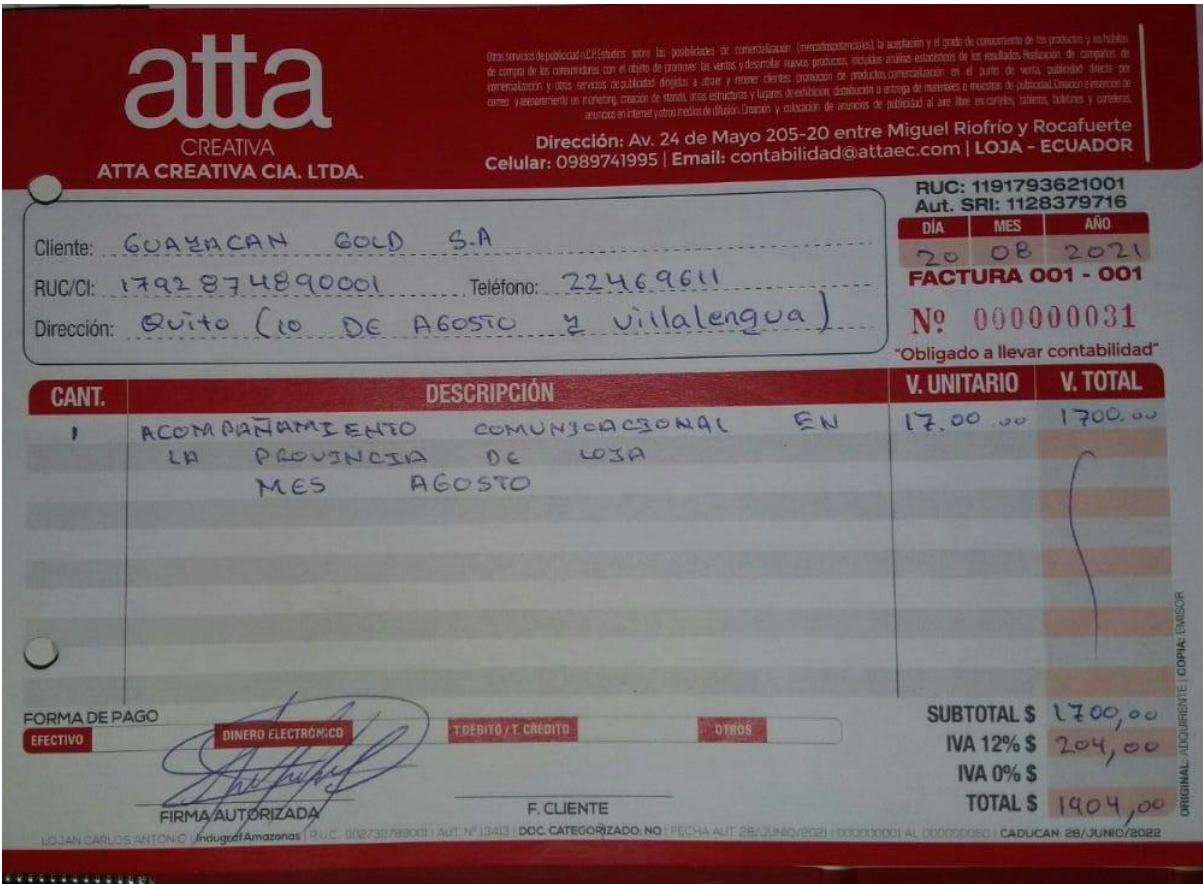 atta
CREATIVA
ATTA CREATIVA CIA. LTDA.
Otros servicios de publicidad n.C.P.Estudios sobre las posibilidades de comercialización (mercados potenciales), la aceptación y el grado de conocimiento de los productos y los hábitos
de compra de los consumidores con el objeto de promover las ventas y desarrollar nuevos productos, incluidos análisis estadísticos de los resultados Realización de campañas de
comercialización y otros servicios de publicidad dirigidos a atraer y retener clientes: promoción de productos, comercialización en el punto de venta, publicidad directa por
correo y asesoramiento en marketing, creación de stands, otras estructuras y lugares de exhibición, distribución o entrega de materiales o muestras de publicidad. Creación e inserción de
anuncios en internet y otros medios de difusión. Creación y colocación de anuncios de publicidad al aire libre en carteles, tableros, boletines y carteleras.
Dirección: Av. 24 de Mayo 205-20 entre Miguel Riofrío y Rocafuerte
Celular: 0989741995 | Email: contabilidad@attaec.com | LOJA - ECUADOR
RUC: 1191793621001
Aut. SRI: 1128379716
DÍA MES AÑO
20 08 2021
FACTURA 001 - 001
Nº 000000031
"Obligado a llevar contabilidad"
Cliente: GUAYACAN GOLD S.A
RUC/CI: 1792874890001 Teléfono: 22469611
Dirección: Quito (10 DE AGOSTO y villalengua)
CANT. DESCRIPCIÓN V. UNITARIO V. TOTAL
1 ACOMPAÑAMIENTO COMUNICACIONAL EN 17.00.00 1700.00
LA PROVINCIA DE LOJA
MES AGOSTO
FORMA DE PAGO
EFECTIVO DINERO ELECTRÓNICO T.DÉBITO / T. CRÉDITO OTROS
SUBTOTAL $ 1700,00
IVA 12% $ 204,00
IVA 0% $
TOTAL $ 1904,00
FIRMA AUTORIZADA F. CLIENTE
LOJAN CARLOS ANTONIO | IndugrafAmazonas | R.U.C. | AUT. Nº 13413 | DOC. CATEGORIZADO: NO | FECHA AUT. 28/JUNIO/2021 | 000000001 AL 000000050 | CADUCAN: 28/JUNIO/2022
ORIGINAL: ADQUIRENTE | COPIA: EMISOR